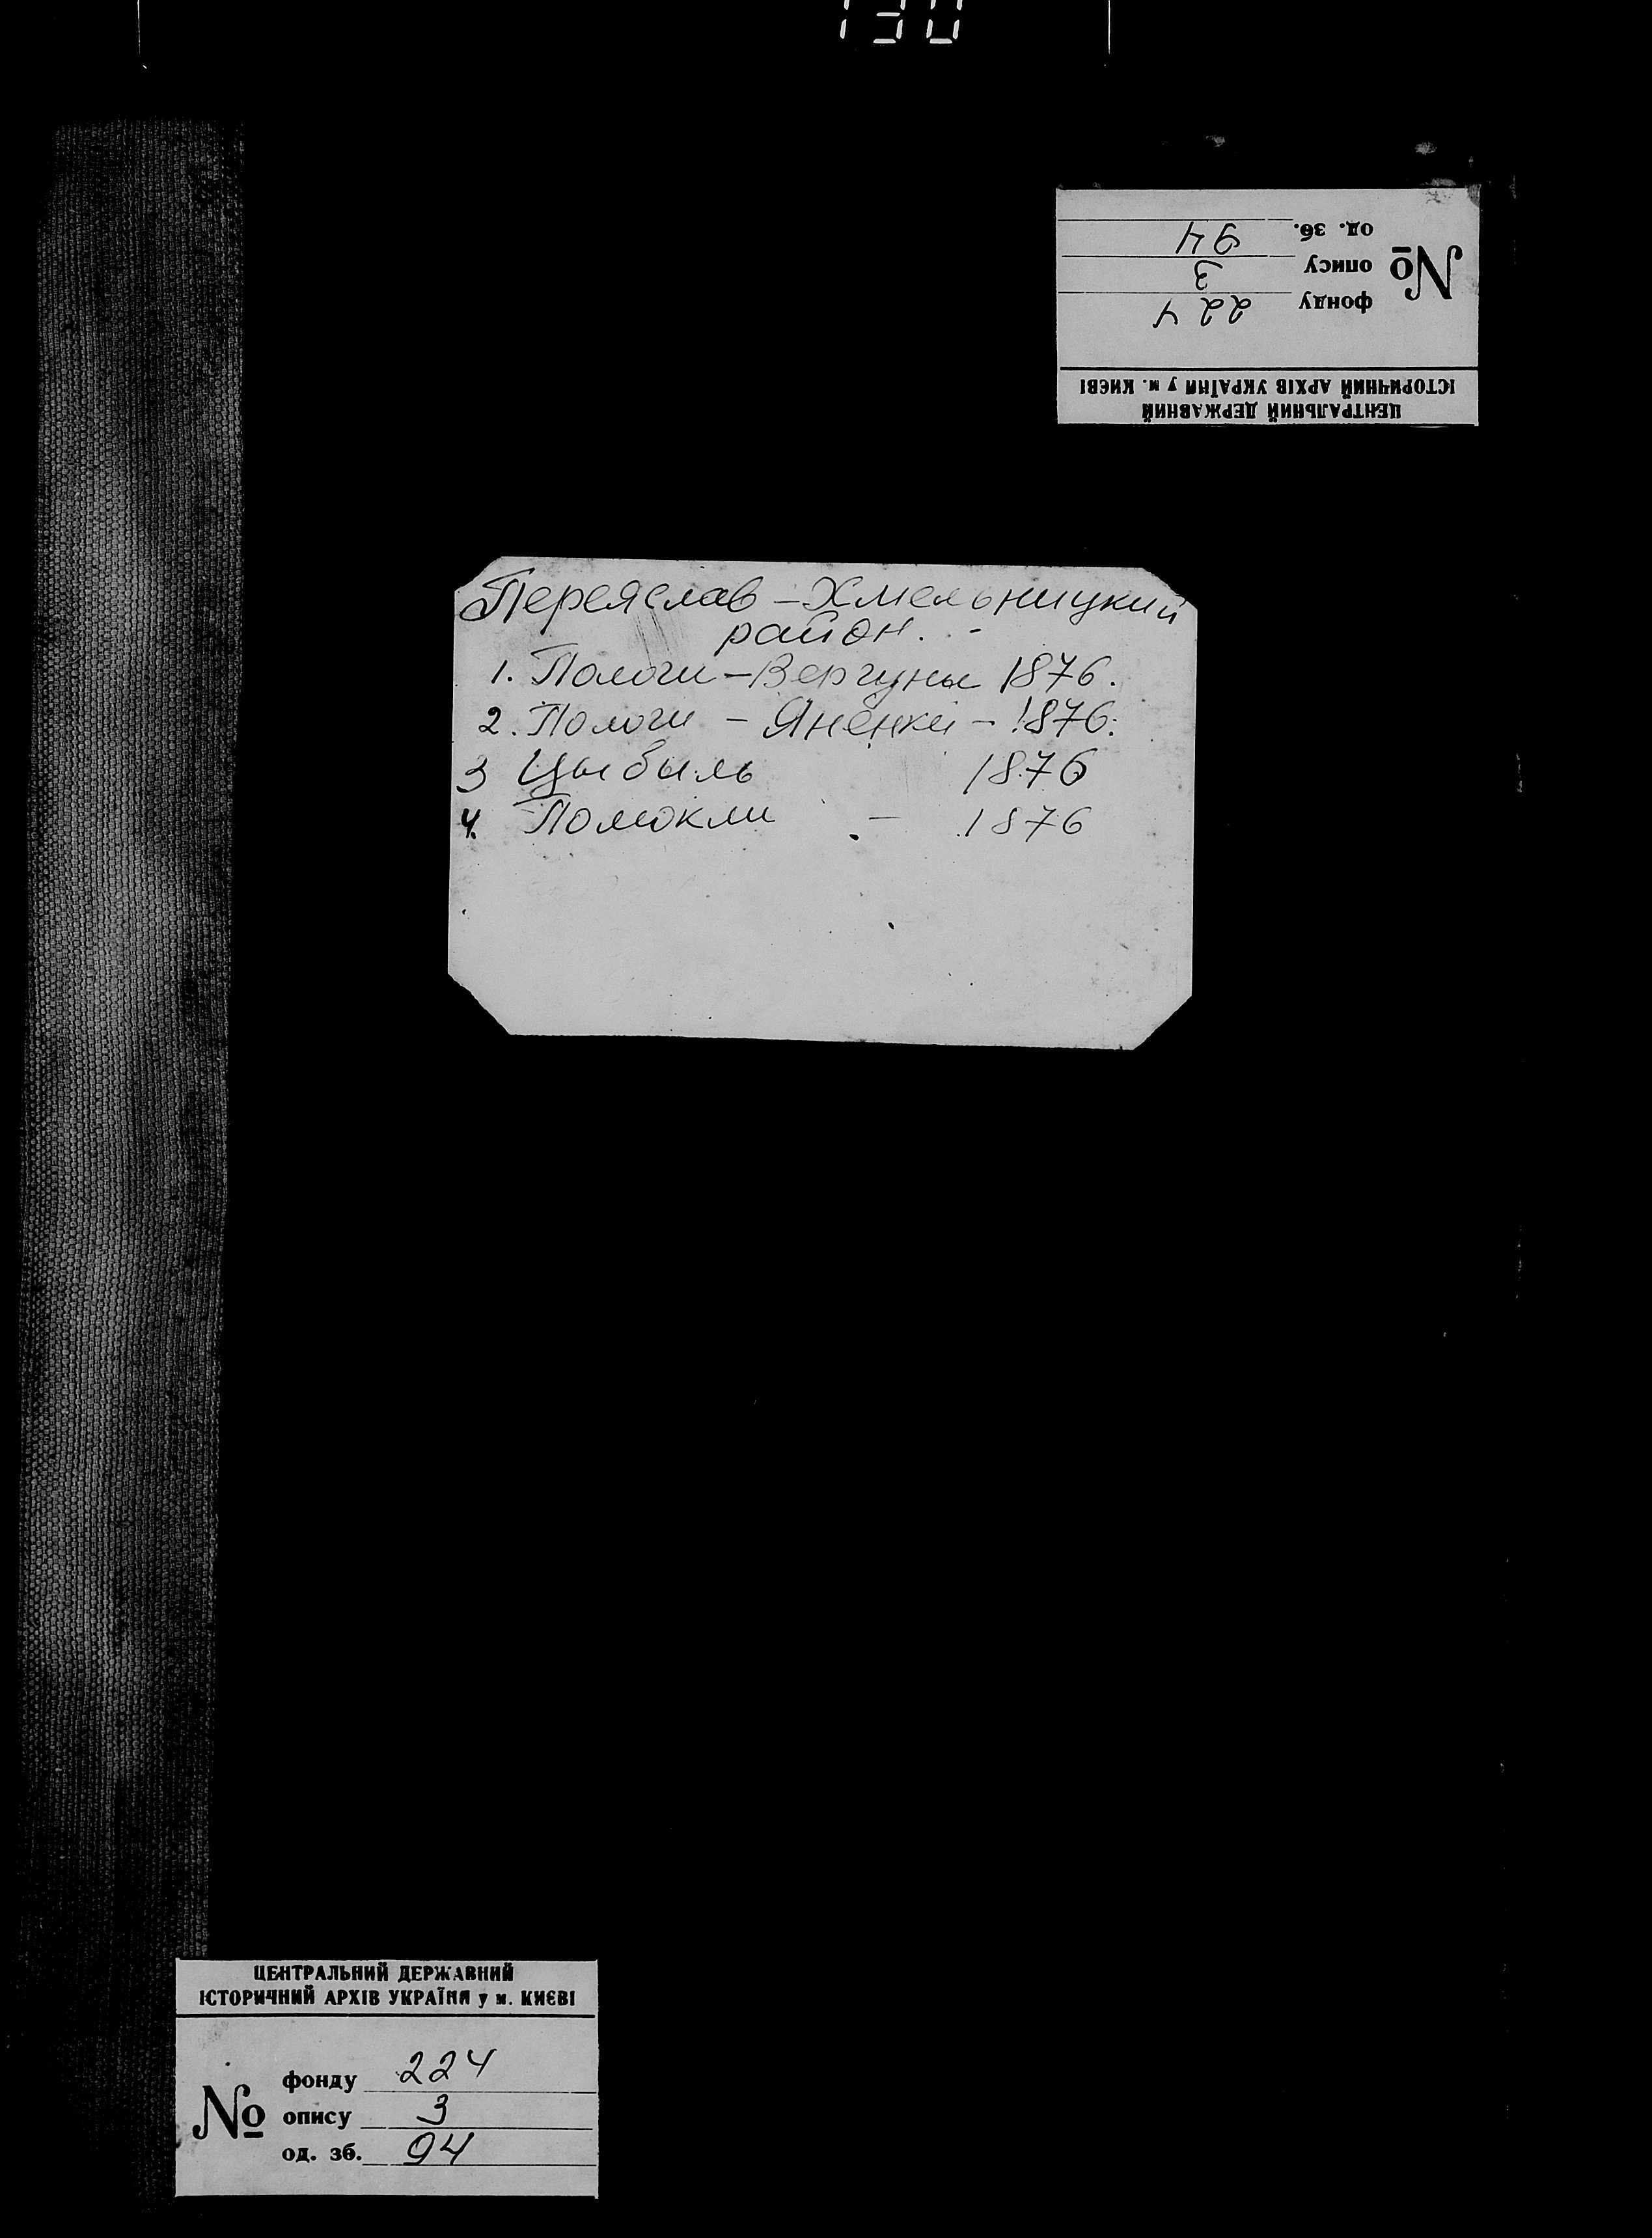 ЦЕНТРАЛЬНИЙ ДЕРЖАВНИЙ
ІСТОРИЧНИЙ АРХІВ УКРАЇНИ у м. КИЄВІ
№
фонду 224
опису 3
од. зб. 94
Переяслав-Хмельницкий
район.
1. Пологи-Вергуны 1876.
2. Пологи - Яненки - 1876.
3 Цыбыль 1876
4. Помокли - 1876
ЦЕНТРАЛЬНИЙ ДЕРЖАВНИЙ
ІСТОРИЧНИЙ АРХІВ УКРАЇНИ у м. КИЄВІ
№
фонду 224
опису 3
од. зб. 94